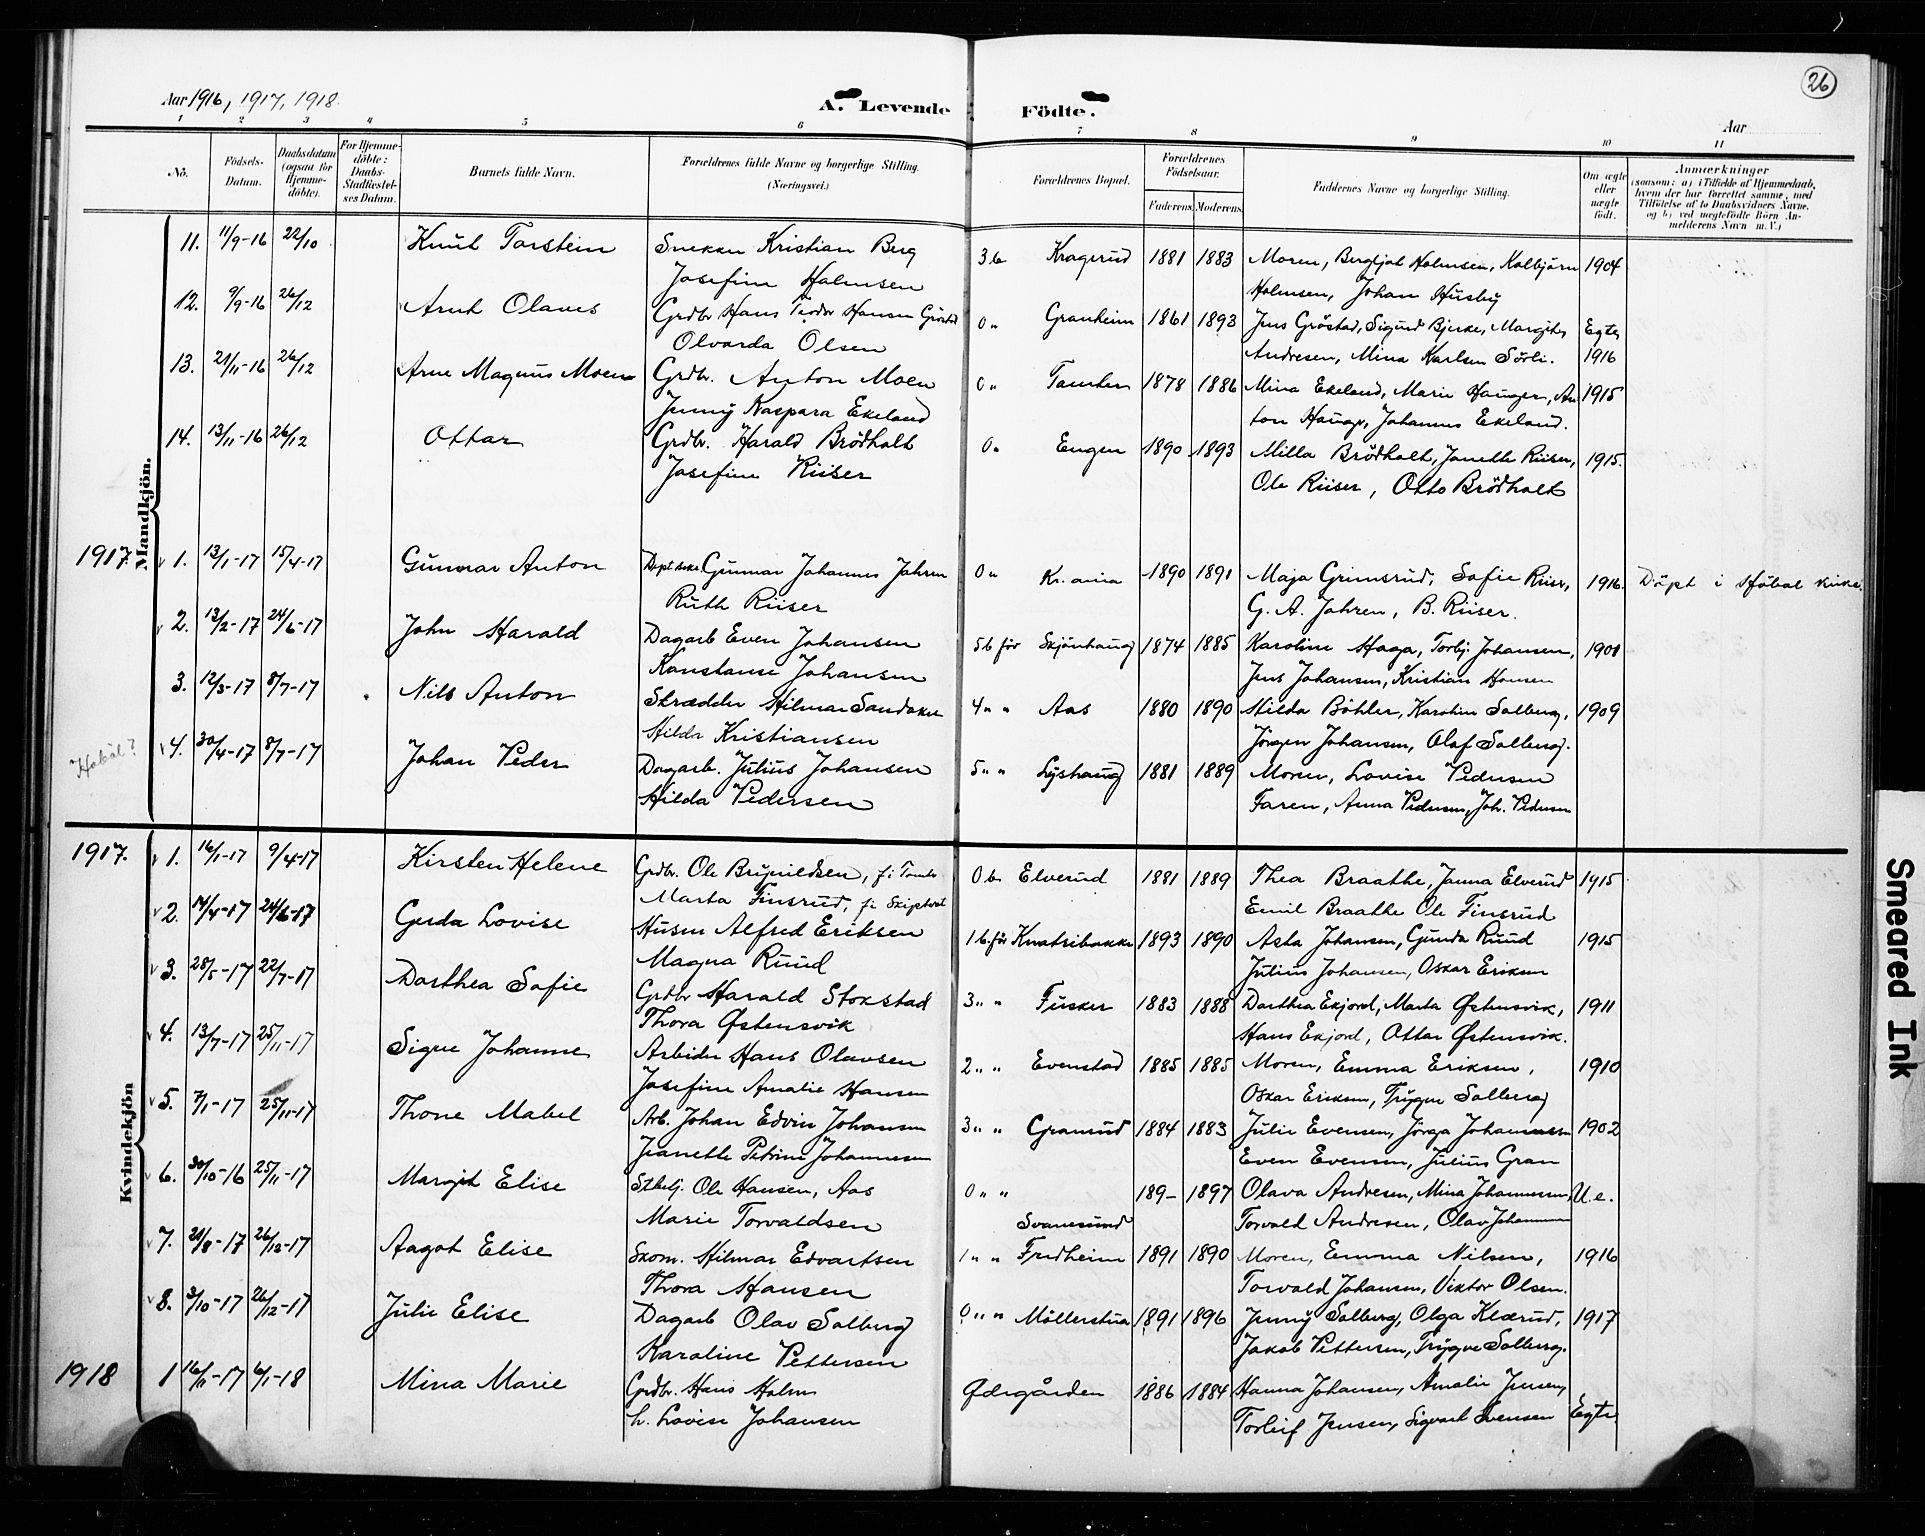 26
Aar 1916, 1917, 1918.
A. Levende Födte.
Aar
1 2 3 4 5 6 7 8 9 10 11
Nö.
Födsels-Datum.
Daabsdatum (ogsaa for Hjemme-döbte).
For Hjemme-döbte: Daabs-Stadfæstel-ses Datum.
Barnets fulde Navn.
Forældrenes fulde Navne og borgerlige Stilling.
(Næringsvei.)
Forældrenes Bopæl.
Forældrenes Födselsaar.
Faderens. Moderens.
Faddernes Navne og borgerlige Stilling.
Om ægte eller uægte födt.
Anmærkninger
(saasom: a) i Tilfælde af Hjemmedaab, hvem der har forrettet samme, med Tilföielse af to Daabsvidners Navne, og b) ved uægtefödte Börn An-melderens Navn m. V.)
Mandkjön.
11. 11/9-16 22/10 Knut Torstein Snekker Kristian Berg 3 b Kragerud 1881 1883 Moren, Bergljot Holmsen, Kolbjörn 1904
Josefine Holmsen Holmsen, Johan Husby
12. 9/9-16 26/12 Arnt Olaves Grdbr Hans Peder Hansen Gröstad 0 " Granheim 1861 1893 Jens Gröstad, Sigurd Bjerke, Margit Egte
Olvarda Olsen Andresen, Mina Karlsen Sörli. 1916
13. 21/11-16 26/12 Arne Magnus Moen Grdbr. Anton Moen 0 " Tomter 1878 1886 Mina Ekeland, Marie Hauger, An- 1915
Jenny Kaspara Ekeland ton Hauge, Johannes Ekeland.
14. 13/11-16 26/12 Ottar Grdbr. Harald Brödholt 0 " Engen 1890 1893 Milla Brödholt, Janette Riiser, 1915.
Josefine Riiser Ole Riiser, Otto Brödholt
1917 1. 13/1-17 15/4-17 Gunnar Anton Gunnar Johannes Jahren 0 " Kr.ania 1890 1891 Maja Grimsrud, Sofie Riiser, 1916. Döpt i Höböl kirke.
Ruth Riiser G. A. Jahren, B. Riiser.
2. 13/2-17 24/6-17 John Harald Dagarb Even Johansen 5 b för Skjönhaug 1874 1885 Karoline Haga, Torbj. Johansen, 1901
Konstanse Johansen Jens Johansen, Kristian Hansen
3. 12/3-17 8/7-17 Nils Anton Skrædder Hilmar Sandaker 4 " " Aas 1880 1890 Hilda Böhler, Karoline Solberg, 1909
Hilda Kristiansen Jörgen Johansen, Olaf Solberg.
Höböl? 4. 30/4-17 8/7-17 Johan Peder Dagarb. Julius Johansen 5 " " Lyshaug 1881 1889 Moren, Lovise Pedersen
Hilda Pedersen Faren, Anna Pedersen, Joh. Pedersen
Kvindekjön
1917. 1. 16/1-17 9/4-17 Kirsten Helene Grdbr. Ole Brynildsen, f. i Tomter 0 b Elverud 1881 1889 Thea Braathe, Janna Elverud 1915
Marta Finsrud, f. i Skiptvet Emil Braathe Ole Finsrud
2. 14/4-17 24/6-17 Gerda Lovise Husm Alfred Eriksen 1 b. för Knatsebakke 1893 1890 Asta Johansen, Gunda Ruud 1915
Magna Ruud Julius Johansen, Oskar Eriksen
3. 28/5-17 22/7-17 Dorthea Sofie Grdbr Harald Stokstad 3 " " Fusker 1883 1888 Dorthea Ekjord, Marta Østensvik, 1911
Thora Østensvik Hans Ekjord, Ottar Østensvik.
4. 13/7-17 25/11-17 Signe Johanne Arbeider Hans Olavsen 2 " " Evenstad 1885 1885 Moren, Emma Eriksen, 1910
Josefine Amalie Hansen Oskar Eriksen, Trygve Solberg
5. 7/1-17 25/11-17 Thone Mabel Arb. Johan Edvin Johansen 3 " " Gransrud 1884 1883 Julie Evensen, Jörga Johannessen 1902
Jeanette Petrine Johannesen Even Evensen, Julius Gran
6. 30/10-16 25/11-17 Margit Elise Ole Hansen, Aas 0 " " Svanesund 189- 1897 Olava Andresen, Mina Johannessen, U. e.
Marie Torvaldsen Torvald Andresen, Olav Johannesen
7. 21/8-17 26/12-17 Aagot Elise Skom. Hilmar Edvartsen 1 " " Fredheim 1891 1890 Moren, Emma Nilsen, 1916
Thora Hansen Torvald Johansen, Viktor Olsen.
8. 3/10-17 26/12-17 Julie Elise Dagarb Olav Solberg 0 " " Möllerstua 1891 1896 Jenny Solberg, Olga Klærud, 1917
Karoline Pettersen Jakob Pettersen, Trygve Solberg.
1918 1 16/11-17 6/1-18 Mina Marie Grdbr. Hans Holm Ødegården 1886 1884 Hanna Johansen, Amalie Jensen, Egte
h. Lovise Johansen Torleif Jensen, Sigvart Svensen
Smeared Ink